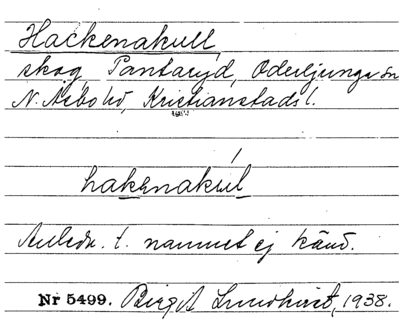 Hackenakull
skog, Pantaryd, Oderljunga sn
N. Åsbo hd, Kristianstads l.
hakenakul
Anledn. t. namnet ej känd.
Nr 5499. Birgit Lundkvist, 1938.